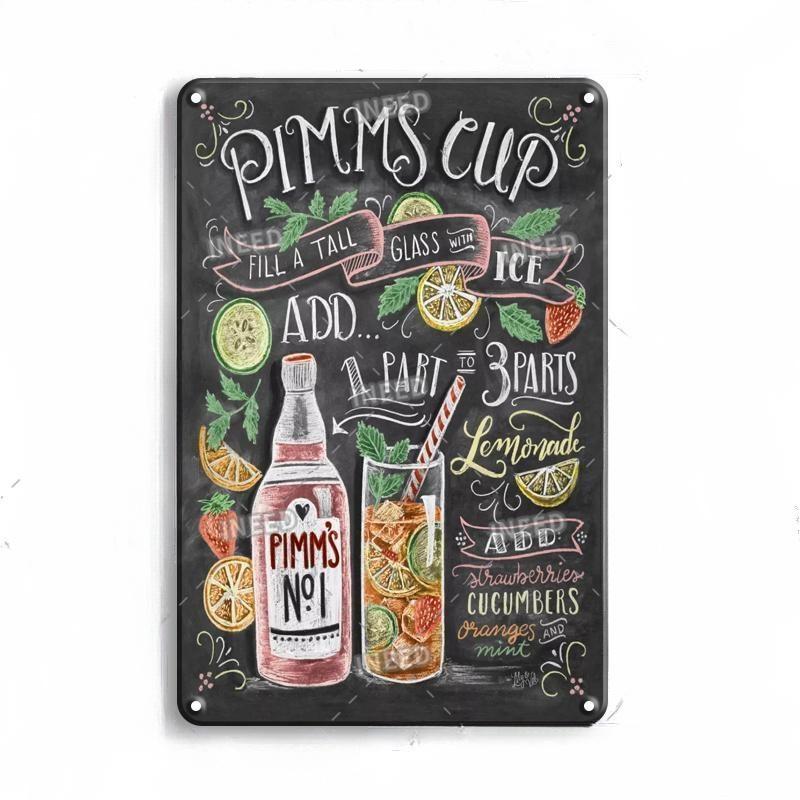 PIMMS CUP
FILL A TALL GLASS WITH ICE
ADD...
1 PART TO 3 PARTS
Lemonade
PIMM'S
No1
ADD
strawberries
CUCUMBERS
oranges AND
mint
INEED
INEED
INEED
INEED
INEED
INEED
INEED